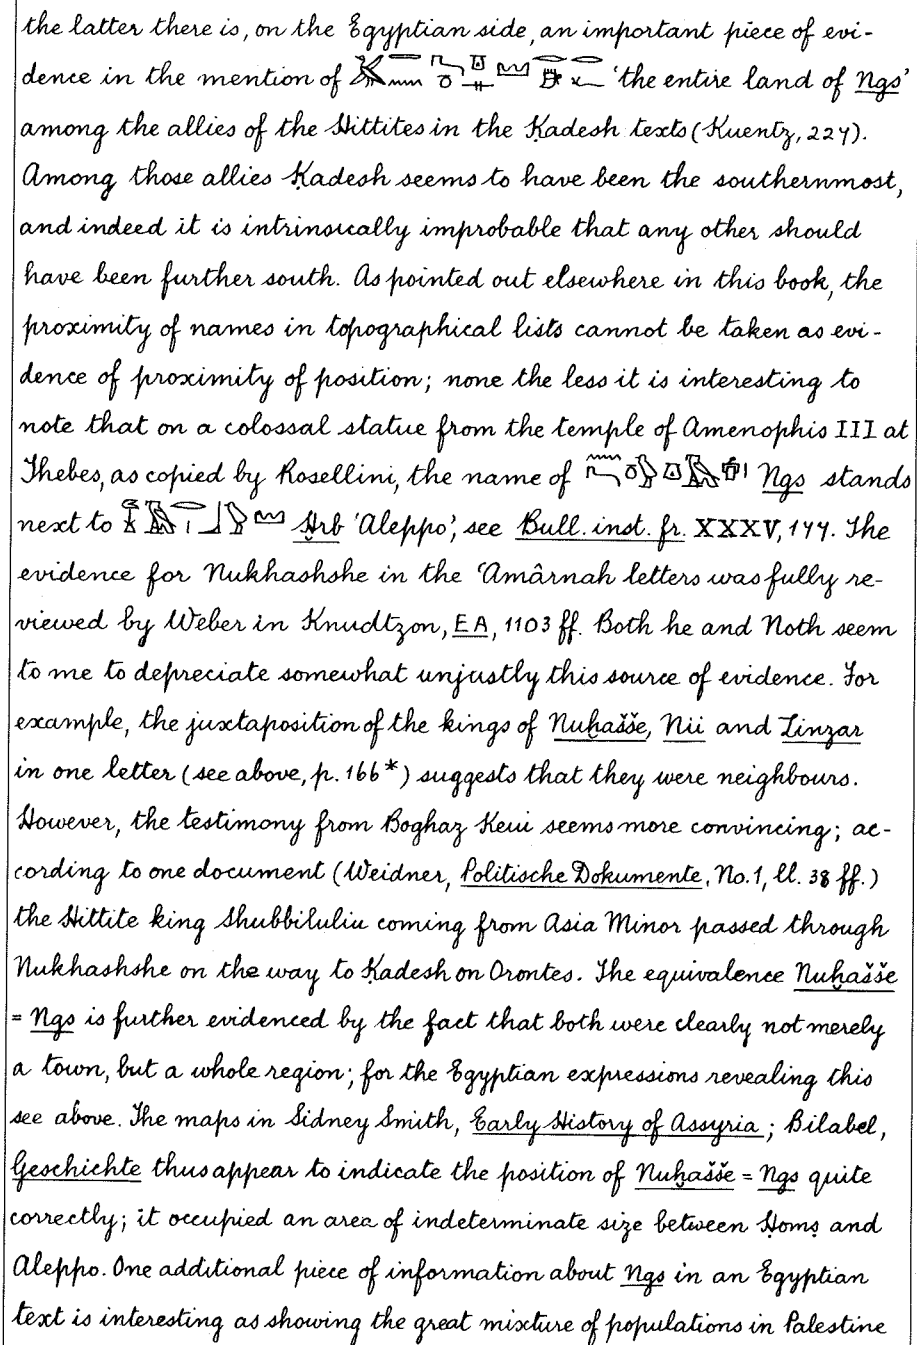 the latter there is, on the Egyptian side, an important piece of evi-
dence in the mention of 'the entire land of Ngs'
among the allies of the Hittites in the Ḳadesh texts (Kuentz, 227).
Among those allies Ḳadesh seems to have been the southernmost,
and indeed it is intrinsically improbable that any other should
have been further south. As pointed out elsewhere in this book, the
proximity of names in topographical lists cannot be taken as evi-
dence of proximity of position; none the less it is interesting to
note that on a colossal statue from the temple of Amenophis III at
Thebes, as copied by Rosellini, the name of Ngs stands
next to Ḫrb 'Aleppo', see Bull. inst. fr. XXXV, 144. The
evidence for Nukhashshe in the 'Amârnah letters was fully re-
viewed by Weber in Knudtzon, EA, 1103 ff. Both he and Noth seem
to me to depreciate somewhat unjustly this source of evidence. For
example, the juxtaposition of the kings of Nuḫašše, Nii and Zinzar
in one letter (see above, p. 166*) suggests that they were neighbours.
However, the testimony from Boghaz Keui seems more convincing; ac-
cording to one document (Weidner, Politische Dokumente, No. 1, ll. 38 ff.)
the Hittite king Shubbiluliu coming from Asia Minor passed through
Nukhashshe on the way to Ḳadesh on Orontes. The equivalence Nuḫašše
= Ngs is further evidenced by the fact that both were clearly not merely
a town, but a whole region; for the Egyptian expressions revealing this
see above. The maps in Sidney Smith, Early History of Assyria; Bilabel,
Geschichte thus appear to indicate the position of Nuḫašše = Ngs quite
correctly; it occupied an area of indeterminate size between Ḥomṣ and
Aleppo. One additional piece of information about Ngs in an Egyptian
text is interesting as showing the great mixture of populations in Palestine